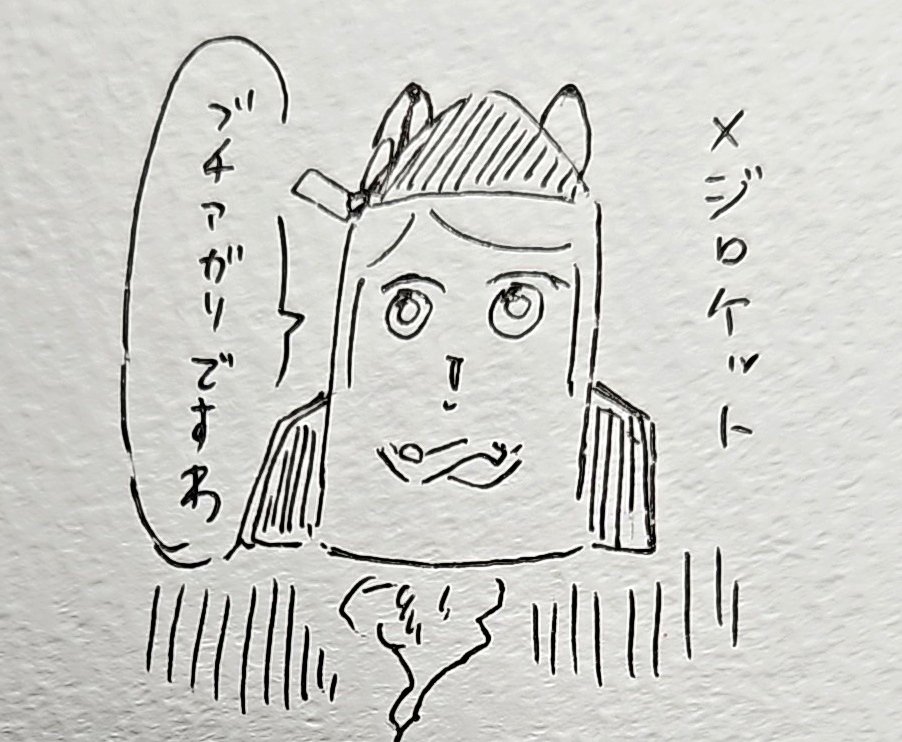 メジロケット
ブチアガリですわ